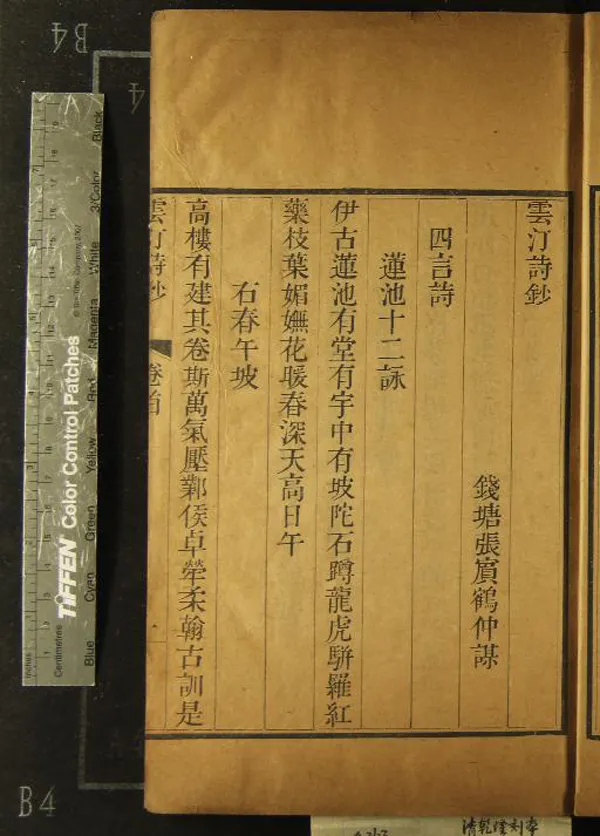 雲汀詩鈔
錢塘張賓鶴仲謀
四言詩
蓮池十二詠
伊古蓮池有堂有宇中有坡陀石蹲龍虎駢羅紅
藥枝葉媚嫵花暖春深天高日午
右春午坡
高樓有建其卷斯萬氣壓鄴侯卓犖柔翰古訓是
雲汀詩鈔
卷首
B4
4
B4
TIFFEN Color Control Patches
© The Tiffen Company, 2007
Inches
Centimetres
Blue
Cyan
Green
Yellow
Red
Magenta
White
3/Color
Black
清乾隆刻本